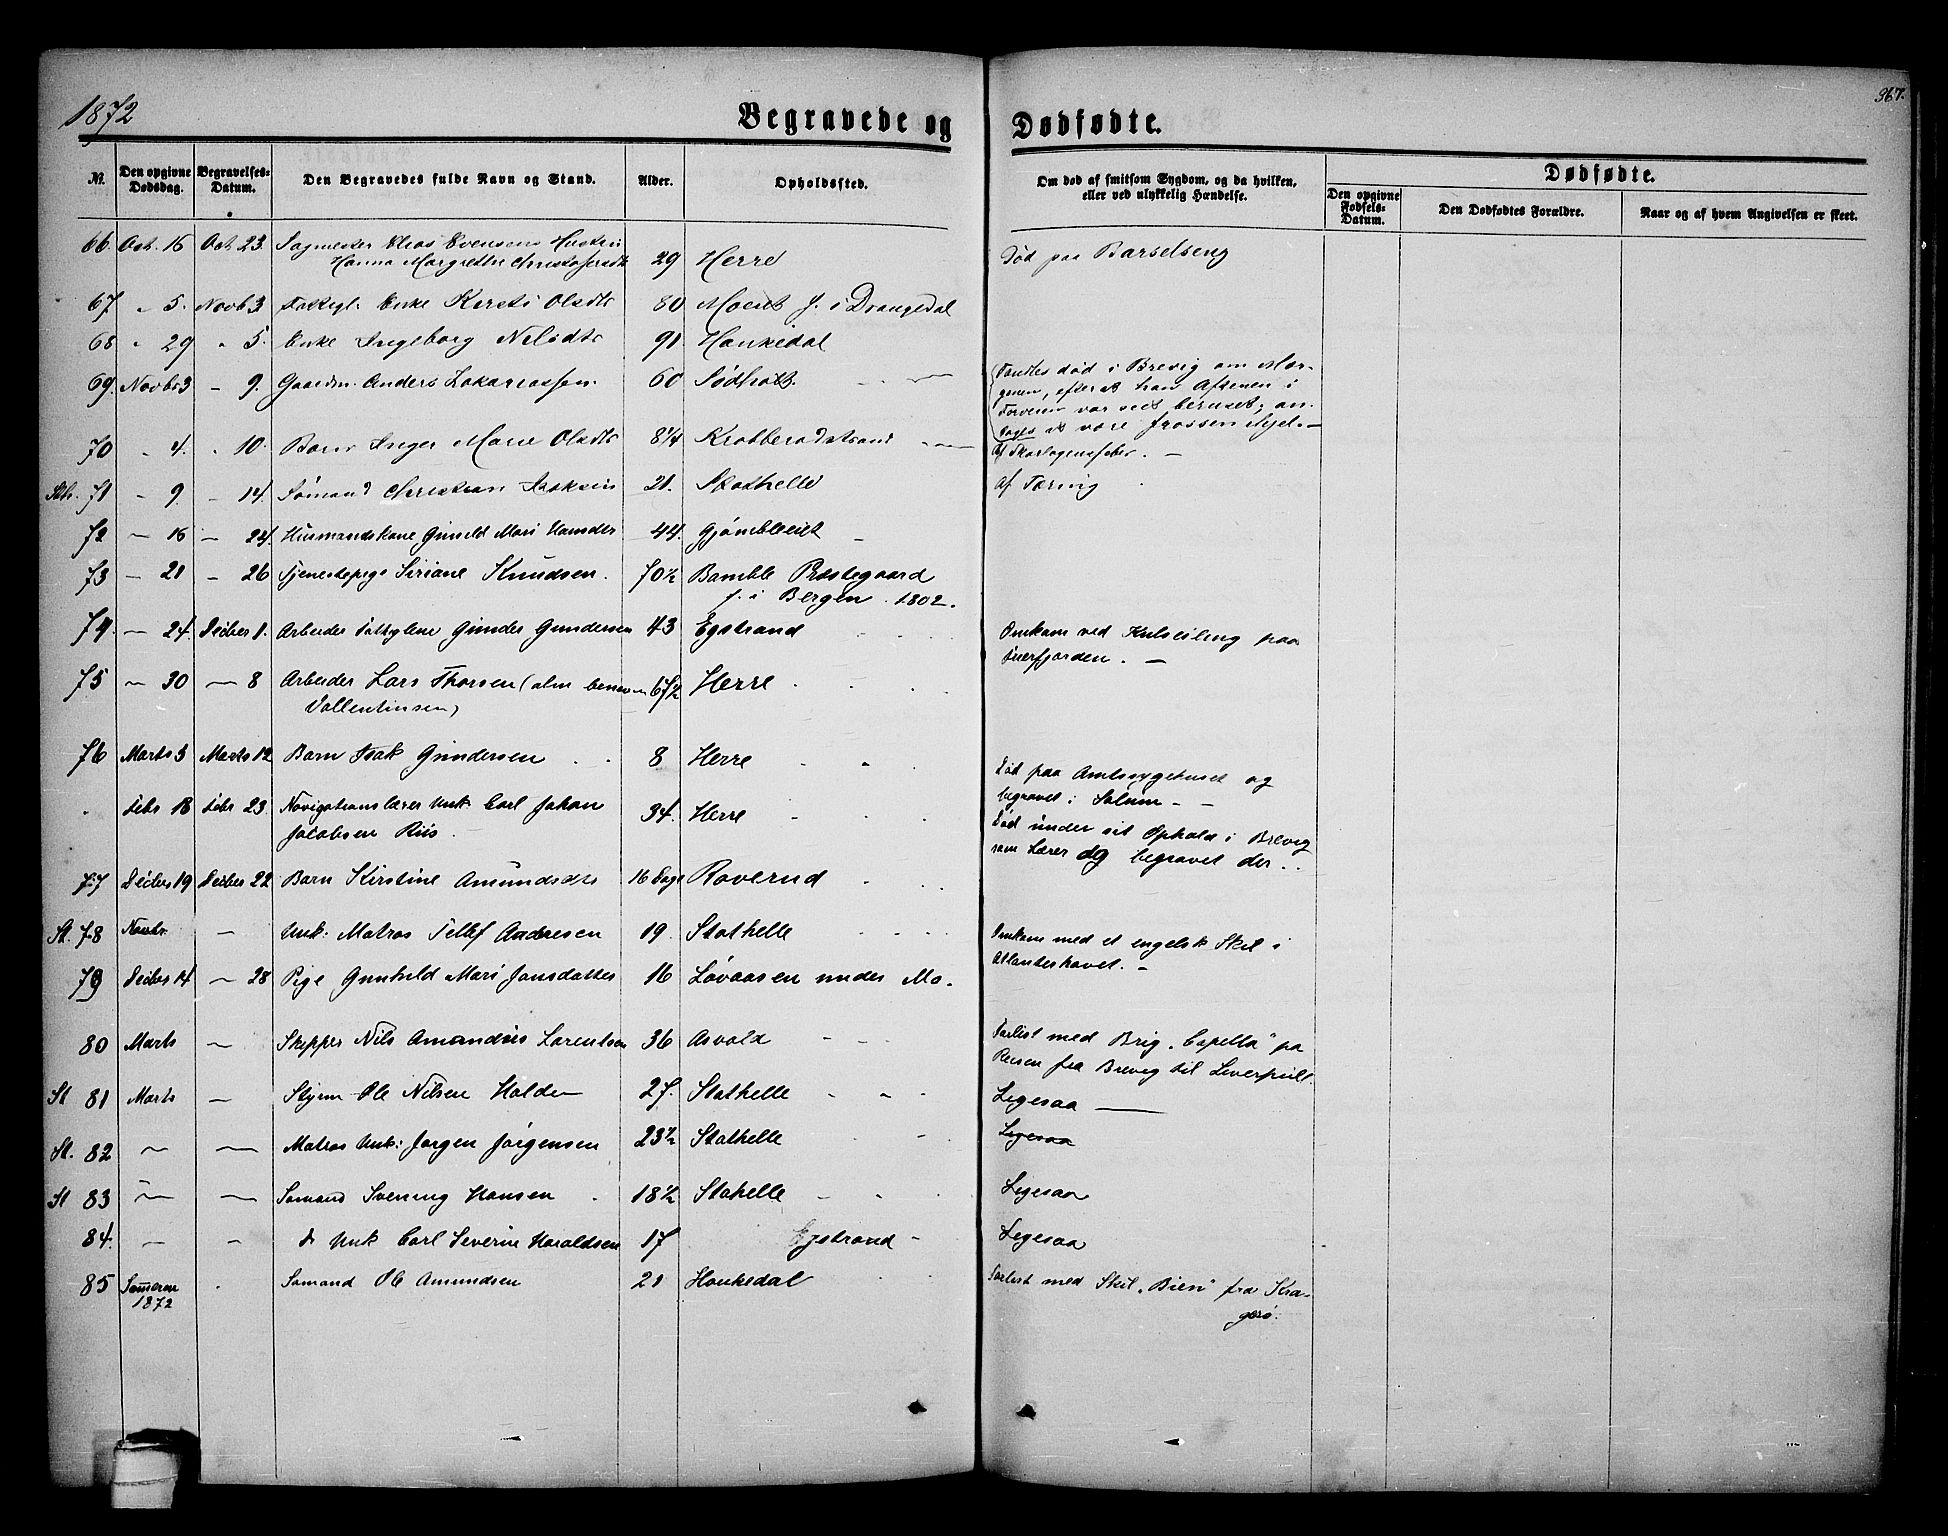 1872
Begravede og Dødfødte.
367.
Nr. Den opgivne Dødsdag. Begravelses-Datum. Den Begravedes fulde Navn og Stand. Alder. Opholdssted. Om død af smitsom Sygdom, og da hvilken, eller ved ulykkelig Hændelse. Dødfødte.
Den opgivne Fødsels-Datum. Den Dødfødtes Forældre. Naar og af hvem Angivelsen er skeet.
66. Oct. 16 Oct 23. Sagmester Elias Evensens Hustru
Hanna Margrethe Christofersdtr 29 Herre Død paa Barselseng
67 " 5. Novb 3 Fattigl. Enke Kirsti Olsdtr 80 Moeiet f. i Drangedal
68 " 29 " 5. Enke Ingeborg Nilsdtr 91 Hankedal
69. Novbr 3 - 9. Gaardm. Anders Zakariassen. 60 Sødholt. Fandtes død i Brevig om Mor-
genen, efterat han Aftenen i
Forveien var seet beruset; an-
tages at være frossen ihjel. -
70 " 4. " 10. Barn Inger Marie Olsdtr 8 1/4 Krabberødstrand af Skarlagensfeber. -
Sth. 71 - 9. - 14. Sømand Christian Isaksen 21. Stathelle af Tæring
72 - 16 - 24. Husmandskone Gunild Mari Hansdtr 44. Gjømbleeiet
73 - 21 - 26 Tjenestepige Siriane Knudsen. 70 1/2 Bamble Præstegaard
f. i Bergen. 1802.
74. - 24. Decbr 1. Arbeider Gunder Gundersen 43 Egstrand Omkom ved Kulseiling paa
Frierfjorden. -
75 - 30 - 8 Arbeider Lars Thorsen (alm benævn 67 1/2 Herre
Vallentinsen)
76 Marts 3 Marts 12 Barn Isak Gundersen 8 Herre Død paa Amtssygehuset og
begravet i Solum - -
" Febr 18 Febr 23. Navigationslærer Unk. Carl Johan
Jacobsen Riis 34. Herre Død under sit Ophold i Brevig
som Lærer og begravet der. .
77 Decbr 19 Decbr 22 Barn Kirstine Amundsdtr 16 Dage Roverud
St. 78 Novbr - Unk: Matros Tellef Andresen 19 Stathelle Omkom med et engelsk Skib i
Atlanterhavet. -
79 Decbr 14 - 28 Pige Gunhild Mari Jansdatter 16 Løvaasen under Mo.
80 Marts - Skipper Nils Amandus Lorentsen 36 Asvold Forlist med Brig "Capella" pa
Reisen fra Brevig til Liverpull
St 81 Marts - Styrm Ole Nilsen Halden 27. Stathelle Ligesaa
St. 82 - - Matros Unk: Jørgen Jørgensen 23 1/2 Stathelle Ligesaa
St 83 - - Sømand Svening Hansen 18 1/2 Stathelle Ligesaa
84. - - do Unk Carl Severin Haraldsen 17 Egstrand - Ligesaa
85 Sommeren
1872 Sømand Ole Amundsen 21 Hankedal Forlist med Skib "Bien" fra Kra-
gerø.